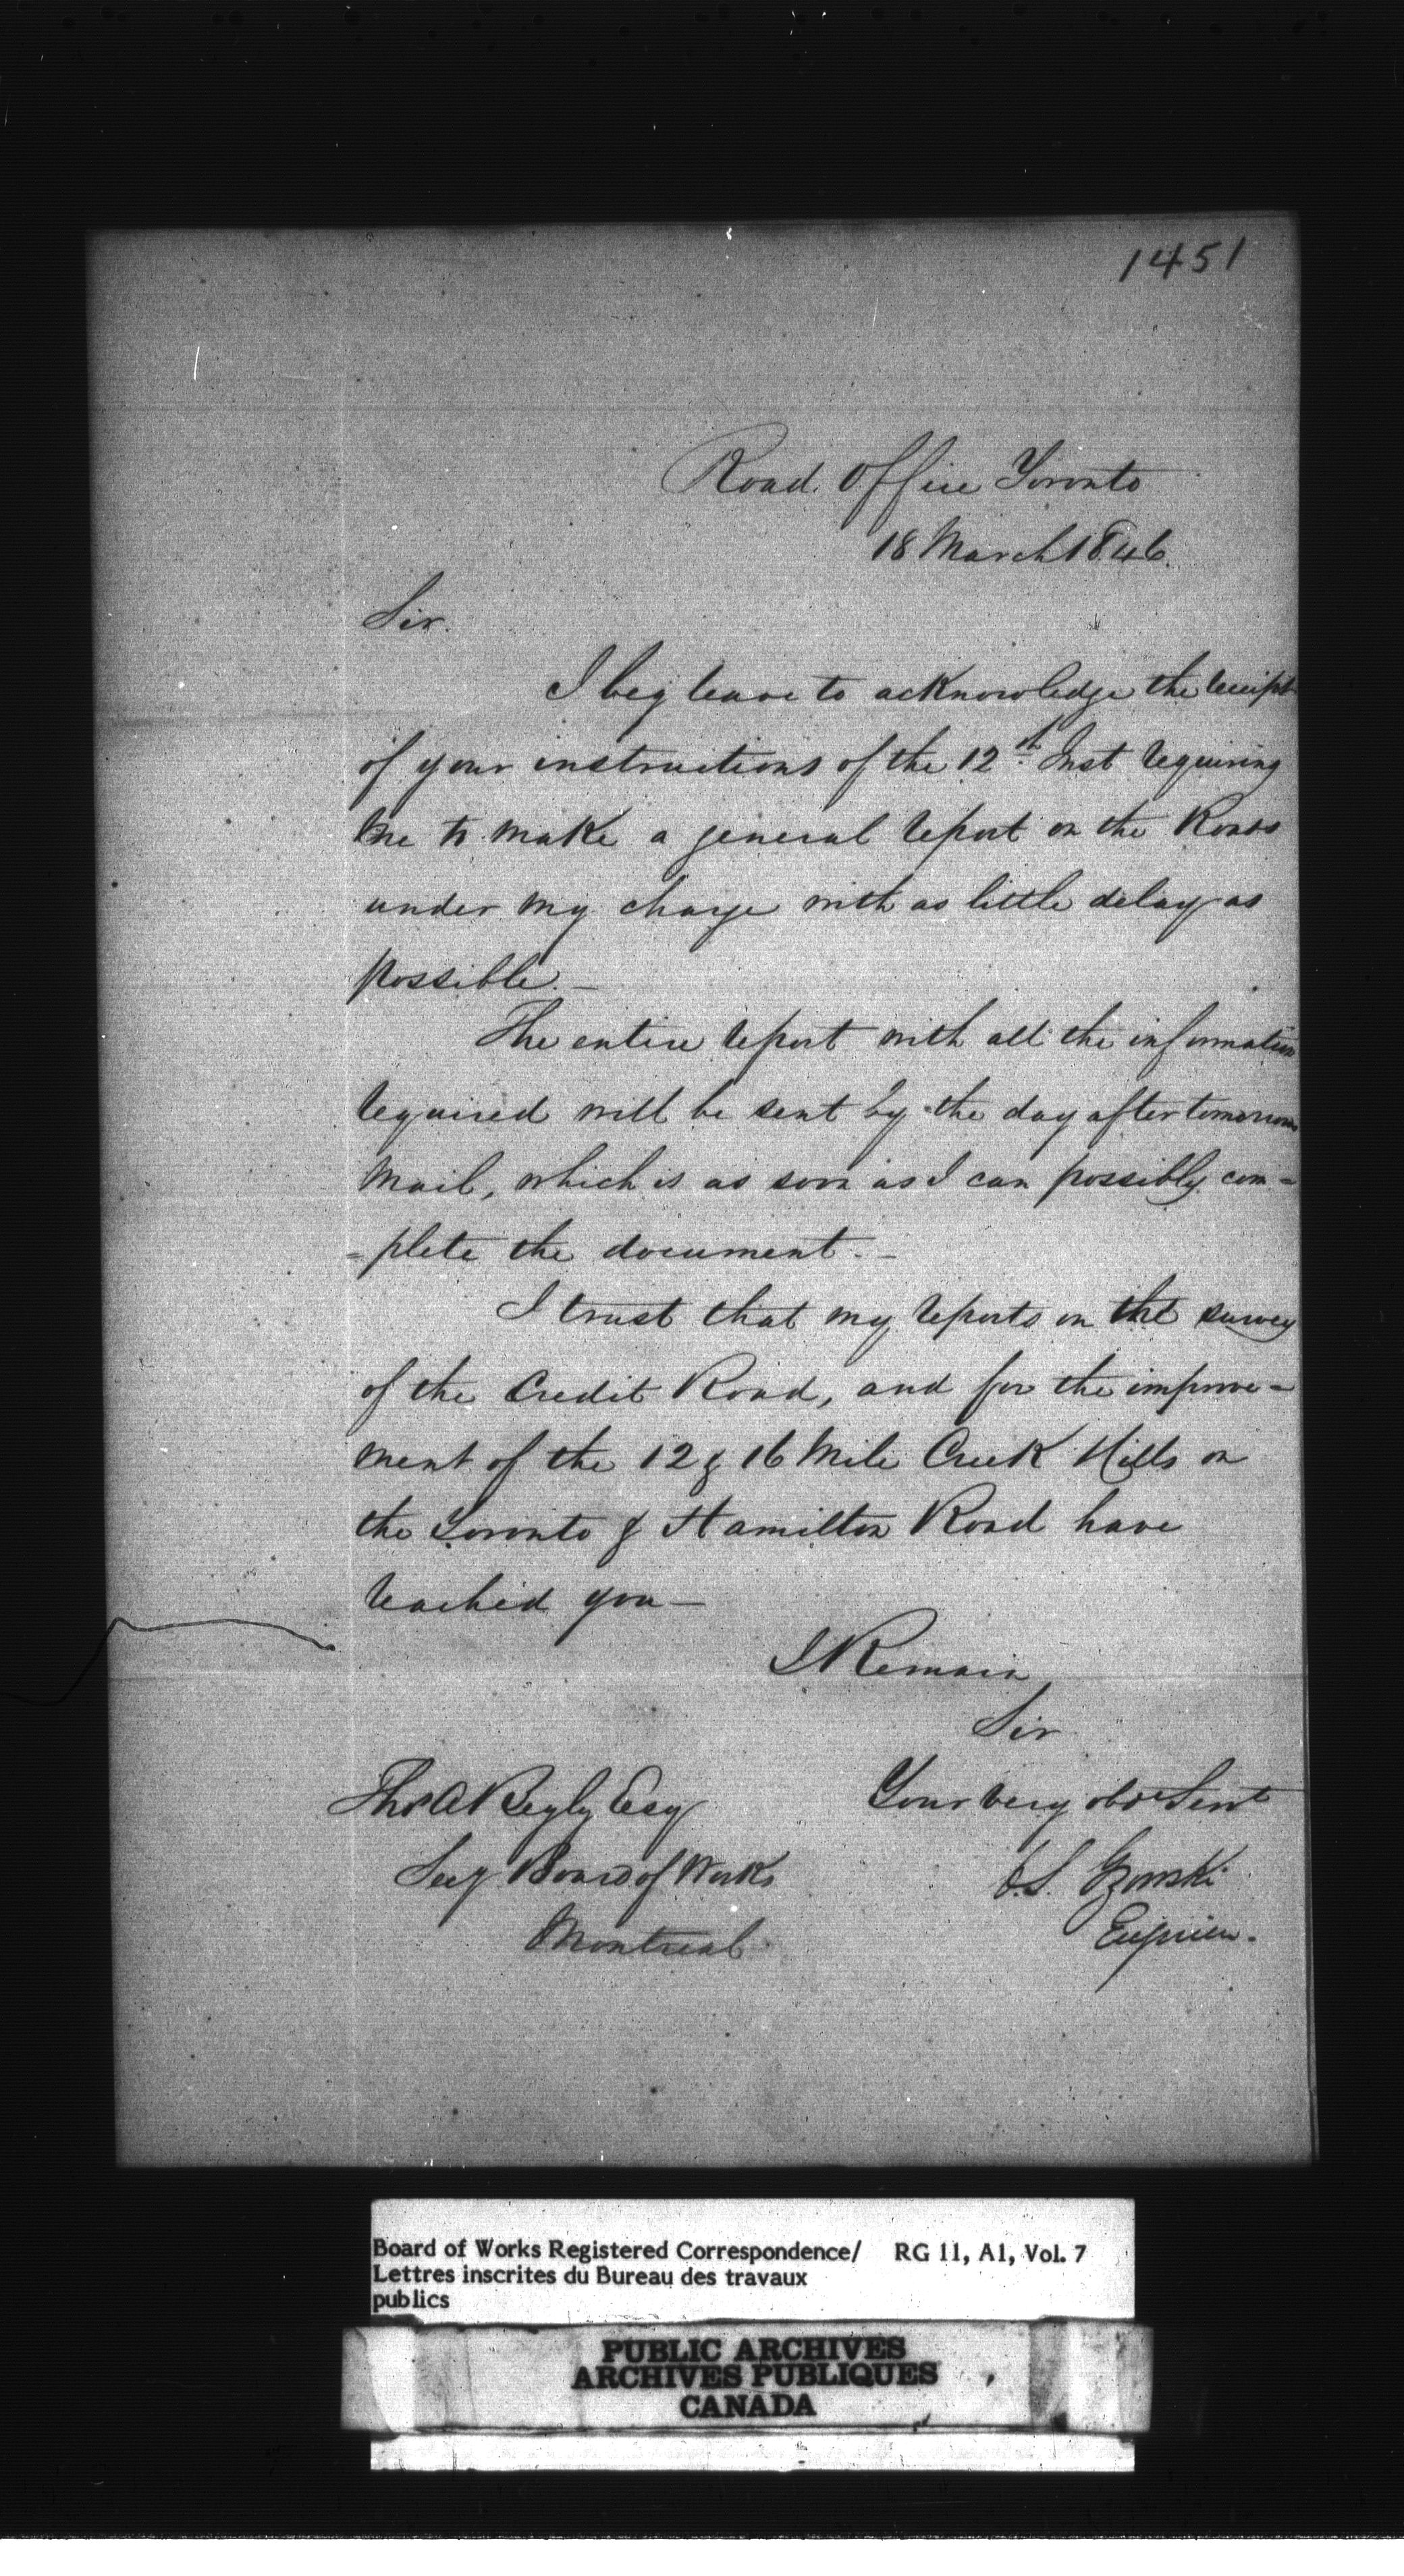 1451
Road Office Toronto
18 March 1846.
Sir.
I beg leave to acknowledge the receipt
of your instructions of the 12th Inst requiring
me to make a general report on the Roads
under my charge with as little delay as
possible. —
The entire report with all the information
required will be sent by the day after tomorrows
Mail, which is as soon as I can possibly com=
=plete the document. —
I trust that my reports on the survey
of the Credit Road, and for the improve=
ment of the 12 & 16 Mile Creek Hills on
the Toronto & Hamilton Road have
reached you —
I Remain
Sir
Your very obdt Servt
C.S. Gzowski
Engineer.
Thos A Begly Esq
Secy Board of Works
Montreal
Board of Works Registered Correspondence/ RG 11, A1, Vol. 7
Lettres inscrites du Bureau des travaux
publics
PUBLIC ARCHIVES
ARCHIVES PUBLIQUES
CANADA